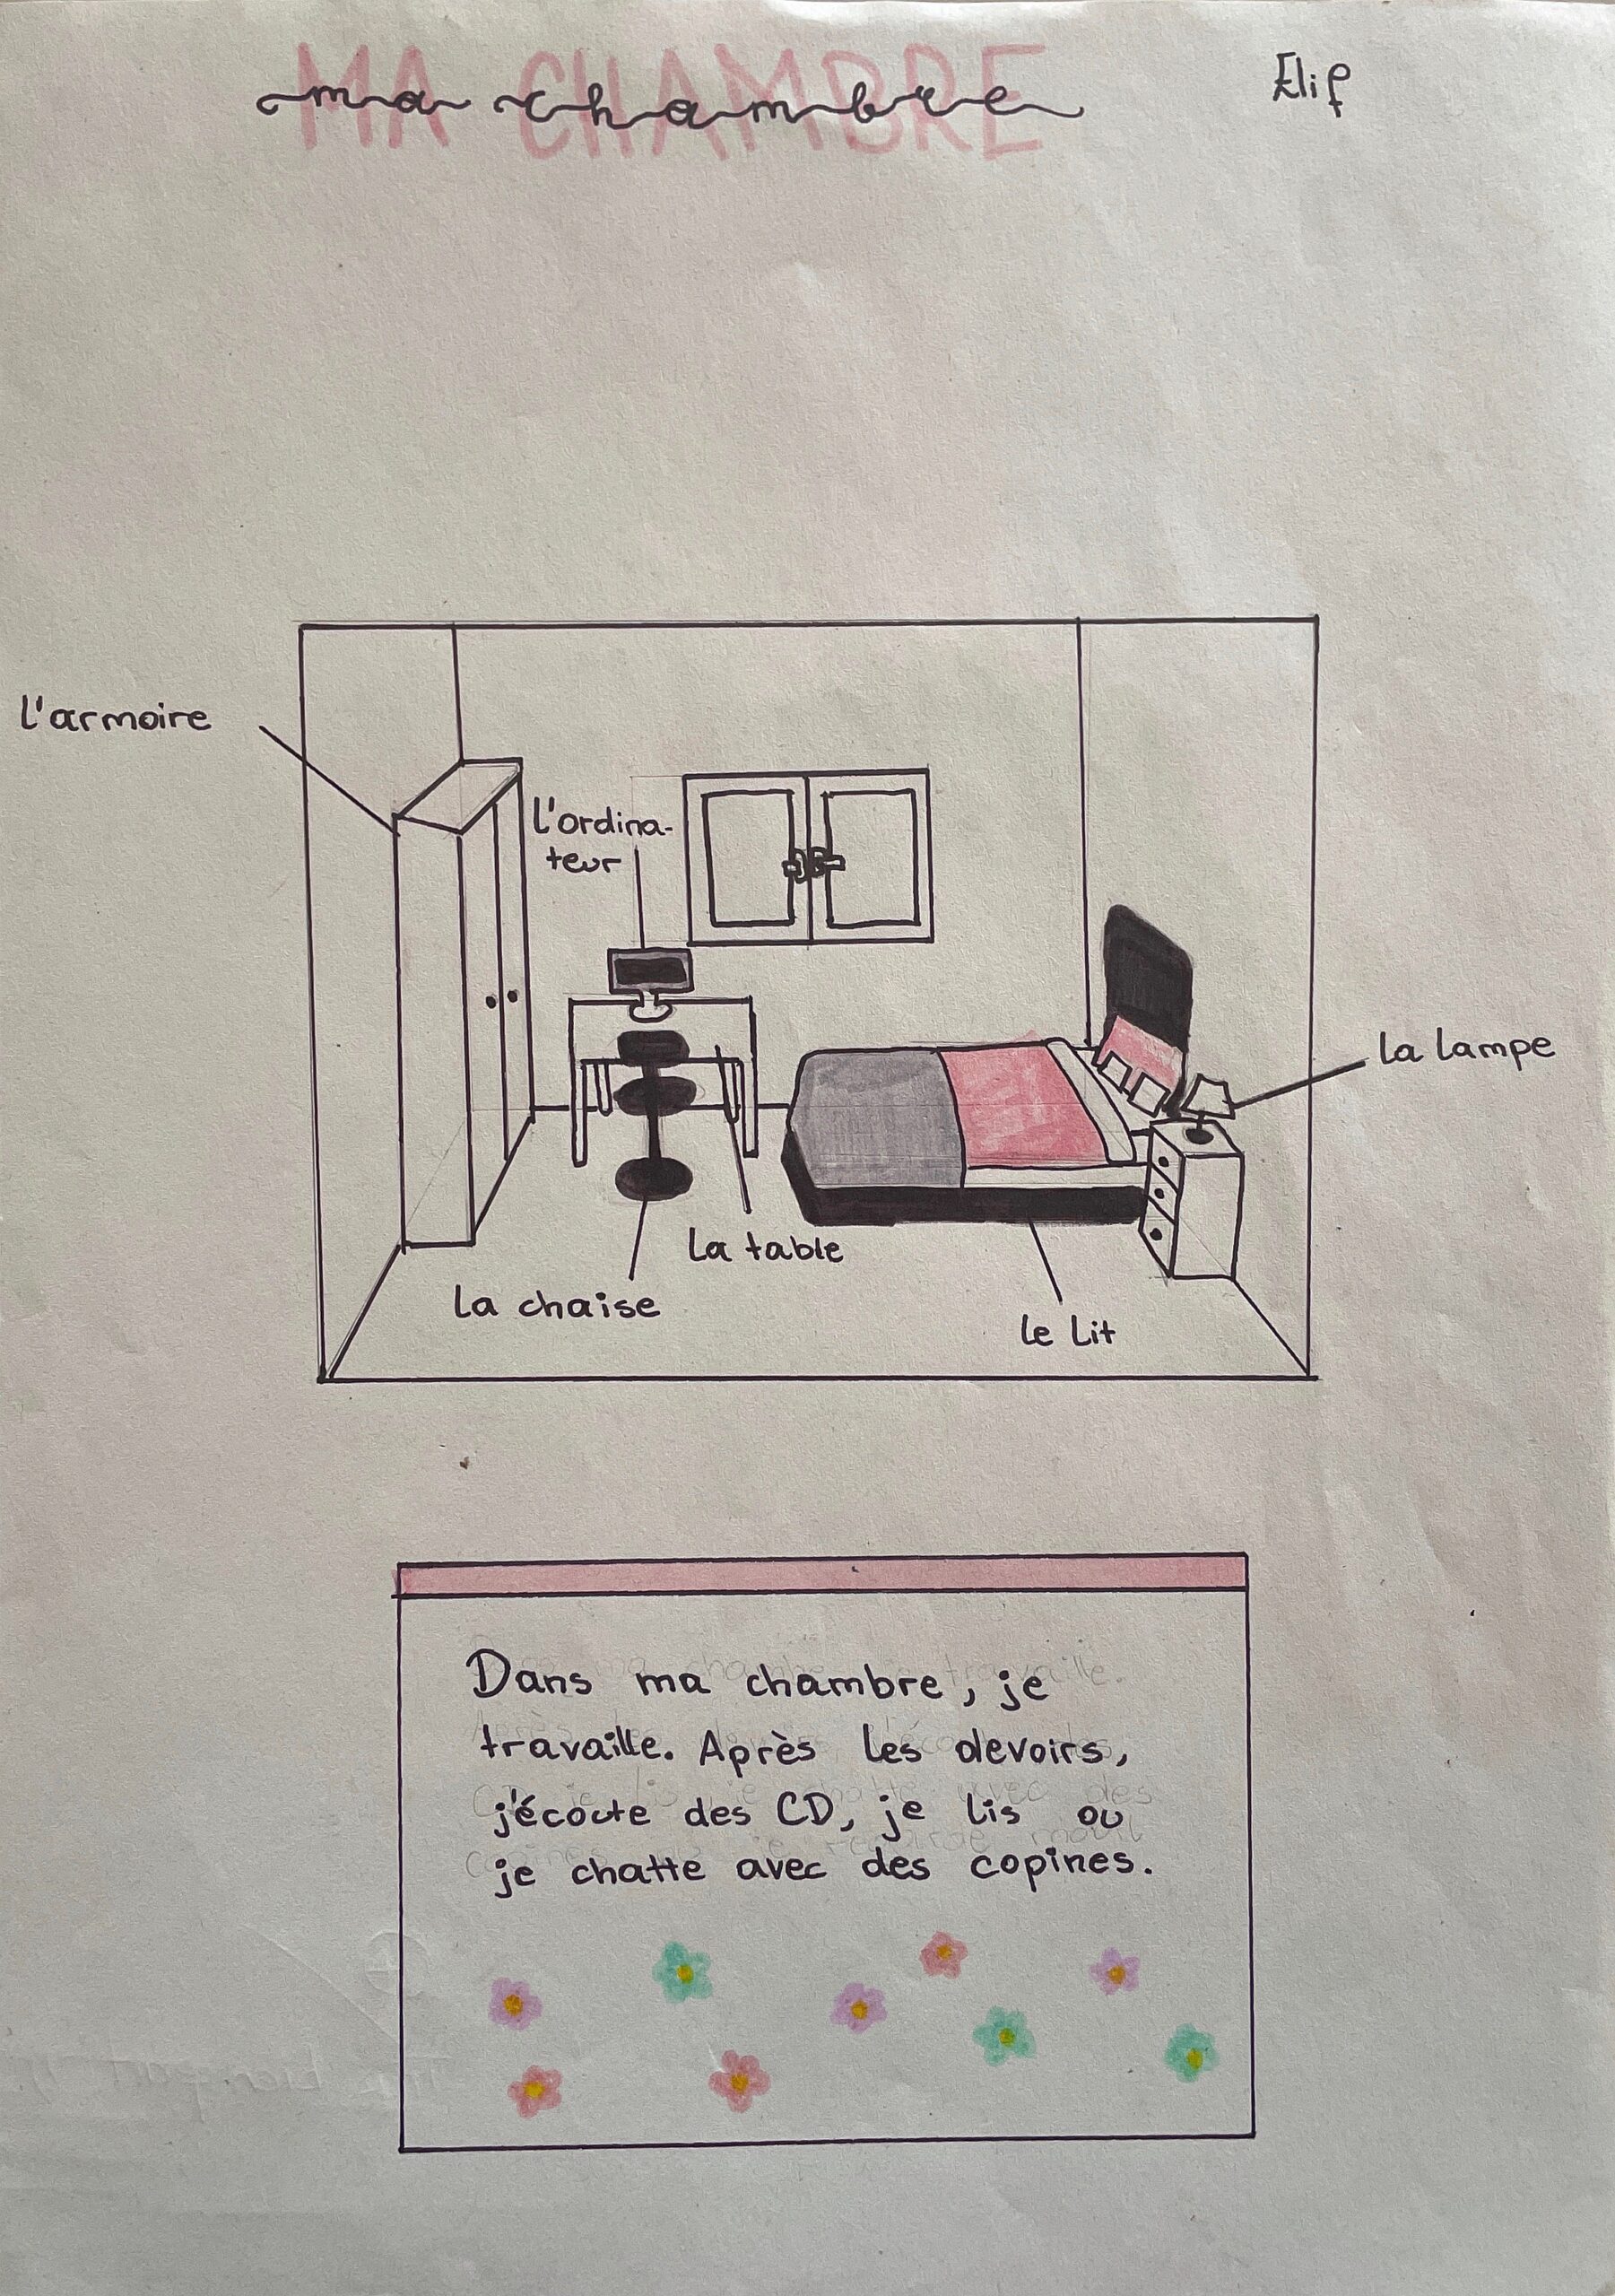 MA CHAMBRE
ma chambre
Elif
l'armoire
l'ordina-
teur
la lampe
la table
la chaise
le lit
Dans ma chambre, je
travaille. Après les devoirs,
j'écoute des CD, je lis ou
je chatte avec des copines.